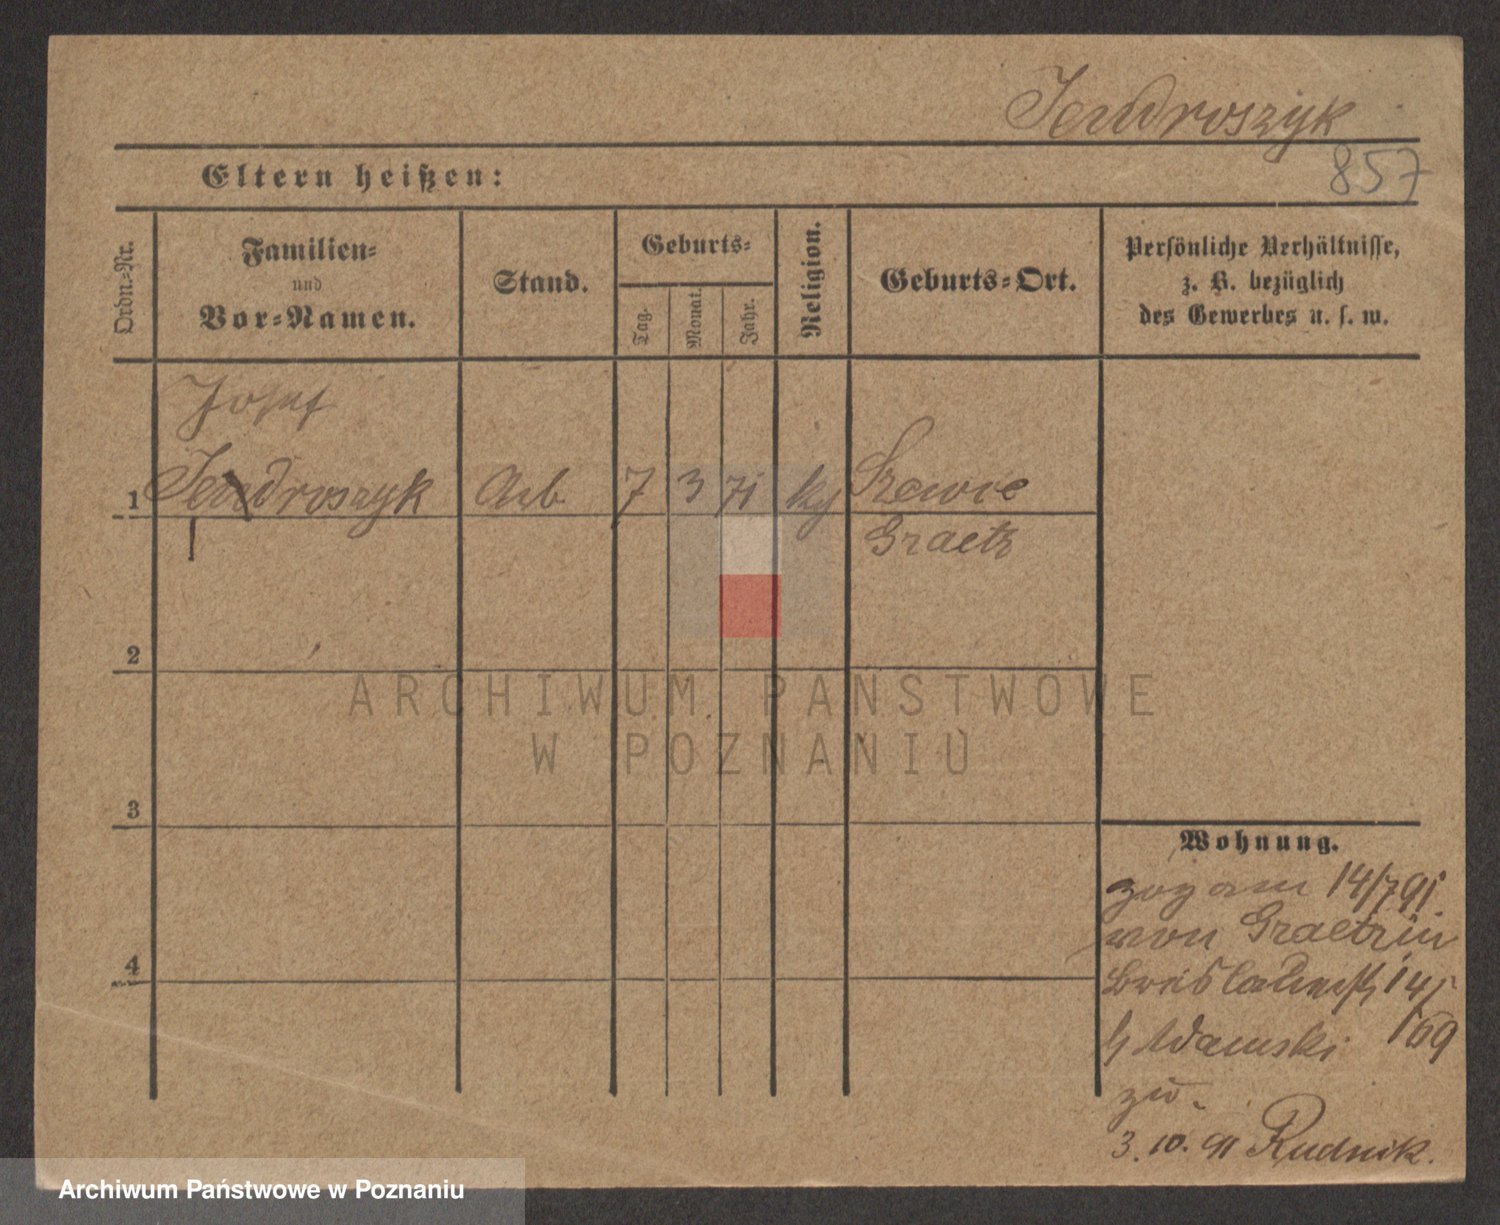 Jendroszyk
857
Eltern heißen:
Ordn.-Nr.
Familien-
und
Vor-Namen.
Stand.
Geburts-
Tag.
Monat.
Jahr.
Religion.
Geburts-Ort.
Persönliche Verhältnisse,
z. B. bezüglich
des Gewerbes u. s. w.
Josef
1 Jendroszyk Arb 7 3 71 Szewce
Graetz
2
3
4
ARCHIWUM PAŃSTWOWE
W POZNANIU
Wohnung.
zog am 14/7 91
von Graetz in
14/
169
Adamski
zu.
3. 10. 91 Rudnik.
Archiwum Państwowe w Poznaniu